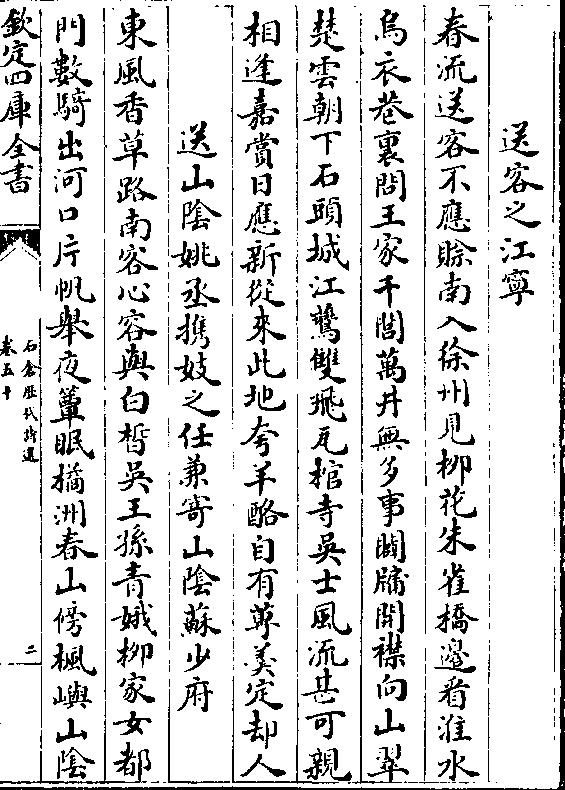 送客之江寧
春流送客不應賖南入徐州見柳花朱雀橋邊看淮水
烏衣巷裏問王家千閭萬井無多事闢牖開襟向山翠
楚雲朝下石頭城江鷰雙飛瓦棺寺吳士風流甚可親
相逢嘉賞日應新從來此地夸羊酪自有蓴羹定却人
送山陰姚丞携妓之任兼寄山陰蘇少府
東風香草路南客心容與白皙吳王孫青娥柳家女都
門數騎出河口片帆舉夜簟眠橘洲春山傍楓嶼山陰
欽定四庫全書
石倉歷代詩選
卷五十
二